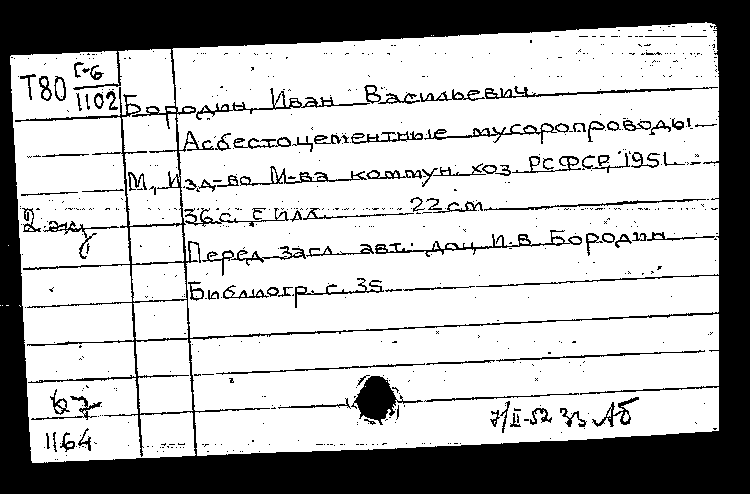 Т80 Г-6
1102
Бородин, Иван Васильевич.
Асбестоцементные мусоропроводы.
М, Изд-во М-ва коммун. хоз. РСФСР, 1951.
2 экз
36 с. с илл. 22 cm
Перед загл. авт.: доц. И.В. Бородин
Библиогр. с. 35
1164
7/II-52 33 АБ